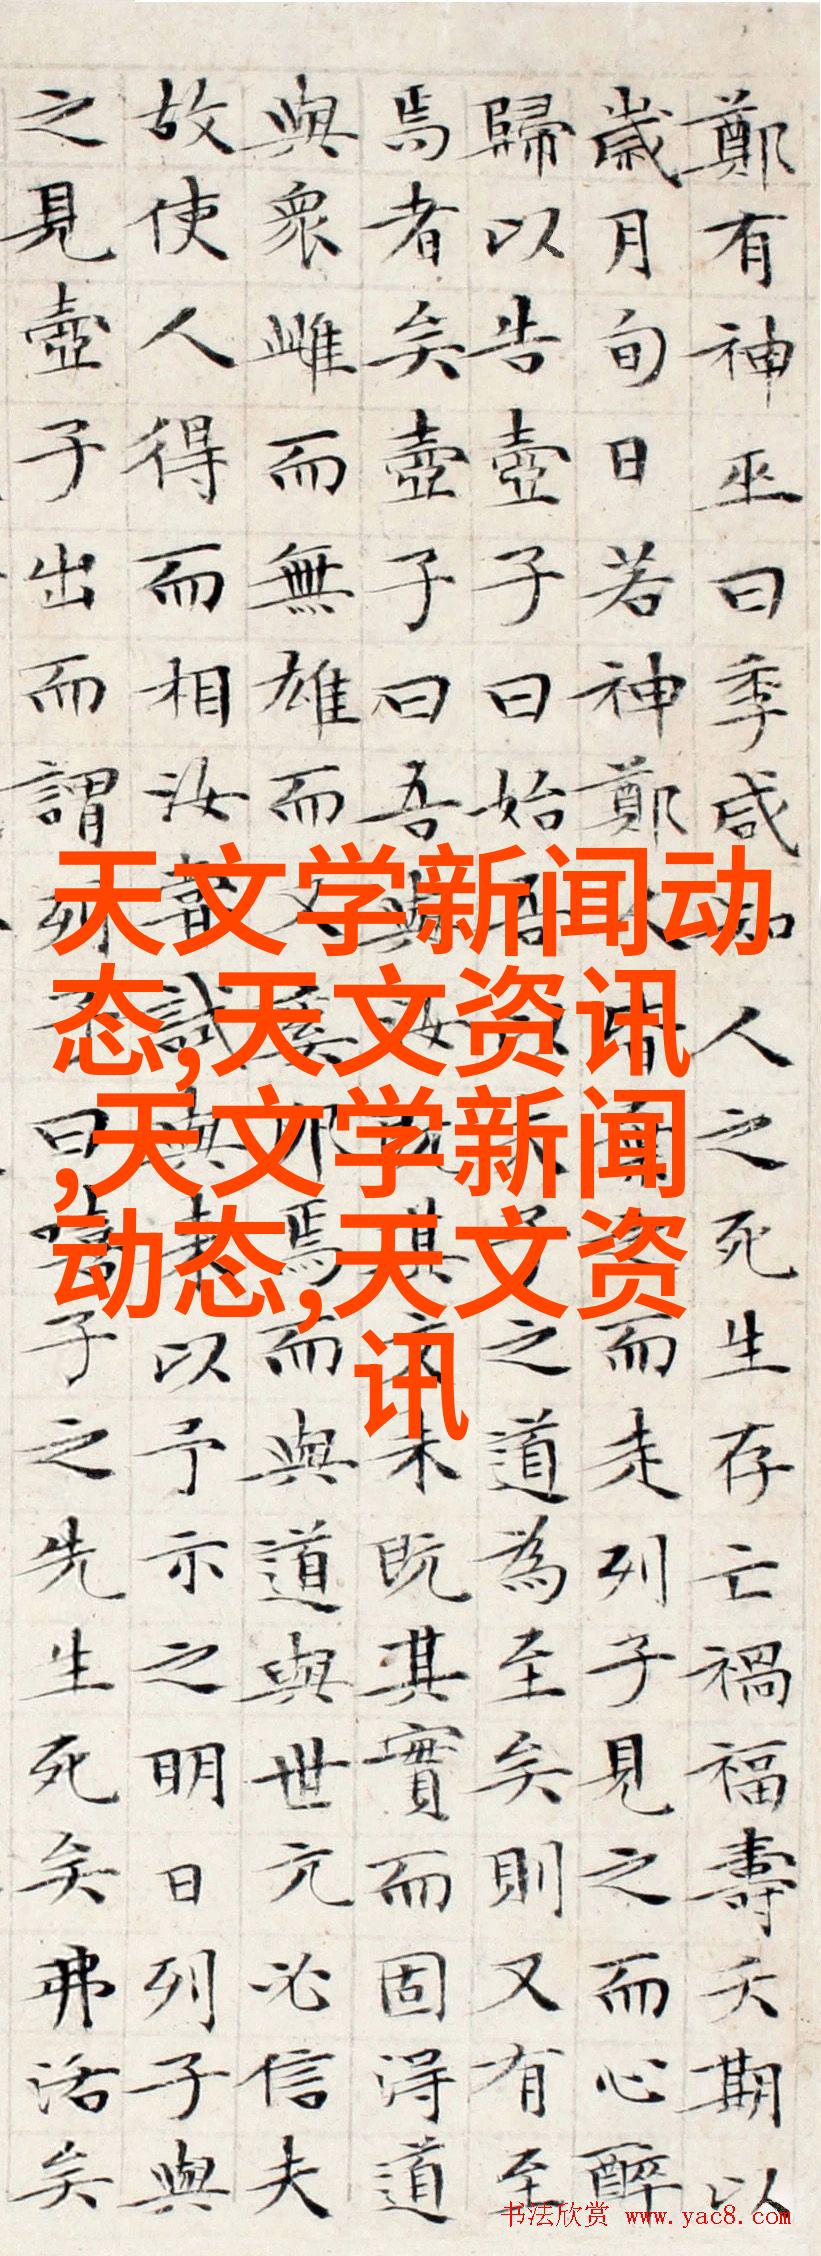 鄭有神巫曰季咸知人之死生存亡禍福壽夭期以
歲月旬日若神鄭人皆棄之而走列子見之而心醉
歸以告壺子曰始吾以夫子之道為至矣則又有至
焉者矣壺子曰吾與汝既其文未既其實而固得道
與衆雌而無雄而又奚卵焉而與道與世亢必信夫
故使人得而相汝嘗試與來以予示之明日列子與
之見壺子出而謂列子曰嘻子之先生死矣弗活矣
天文学新闻动
态,天文资讯
,天文学新闻
动态,天文资
讯
书法欣赏 www.yac8.com